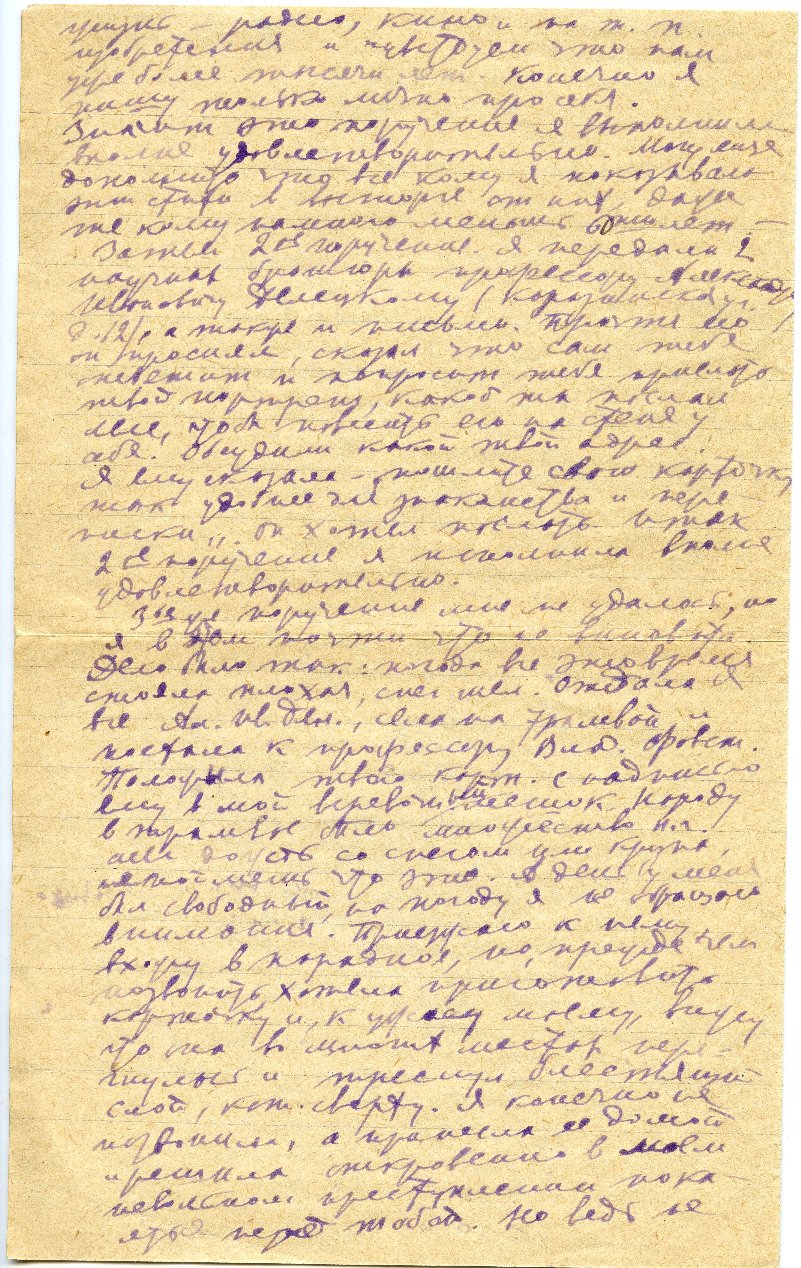 жизнь – радио, кино и на т. п.
изобретения и чувствуем что нам
уже более тысячи лет. Конечно я
пишу только лично про себя.
Значит это поручение я выполнила
вполне удовлетворительно. Могу еще
дополнить что все кому я показывала
эти стихи в восторге от них, даже
те кому намного меньше лет. –
Затем 2ое поручение. Я передала 2
научных брошюры профессору Александру
Ивановичу Белецкому (
д. 12), а также и письмо. Прочтя его
он просиял, сказал что сам тебе
ответит и попросит тебя прислать
твой портрет, какой ты послал
мне, чтоб повесить его на стене у
себя. Обсудили какой твой адрес.
Я ему сказала – пошлите свою карточку
так удобнее для знакомства и пере
писки„. Он хотел послать. Итак
2ое поручение я исполнила вполне
удовлетворительно.
3ье же поручение мне не удалось, но
я в том почти что не виновата
Дело было так: погода все это время
стояла плохая, снег шел. Отдала я
все Ал. Ив. Бел., села на трамвай и
поехала к профессору Влад.
Положила твою карт. с надписью
ему в мой веревочный мешок. Народу
в трамвае было множество и т.
шел дождь со снегом или крупа,
не поймешь что это. А день у меня
был свободный, на погоду я не обращала
внимания. Приезжаю к нему
вхожу в парадное, но, прежде чем
позвонить хотела приготовить
карточку и, к ужасу моему, вижу
что она в шести местах пере-
гнулась и треснул блестящий
слой, кот. сверху. Я конечно не
позвонила, а принесла ее домой
и решила откровенно в моем
невольном преступлении пока-
яться перед тобой. Но ведь не